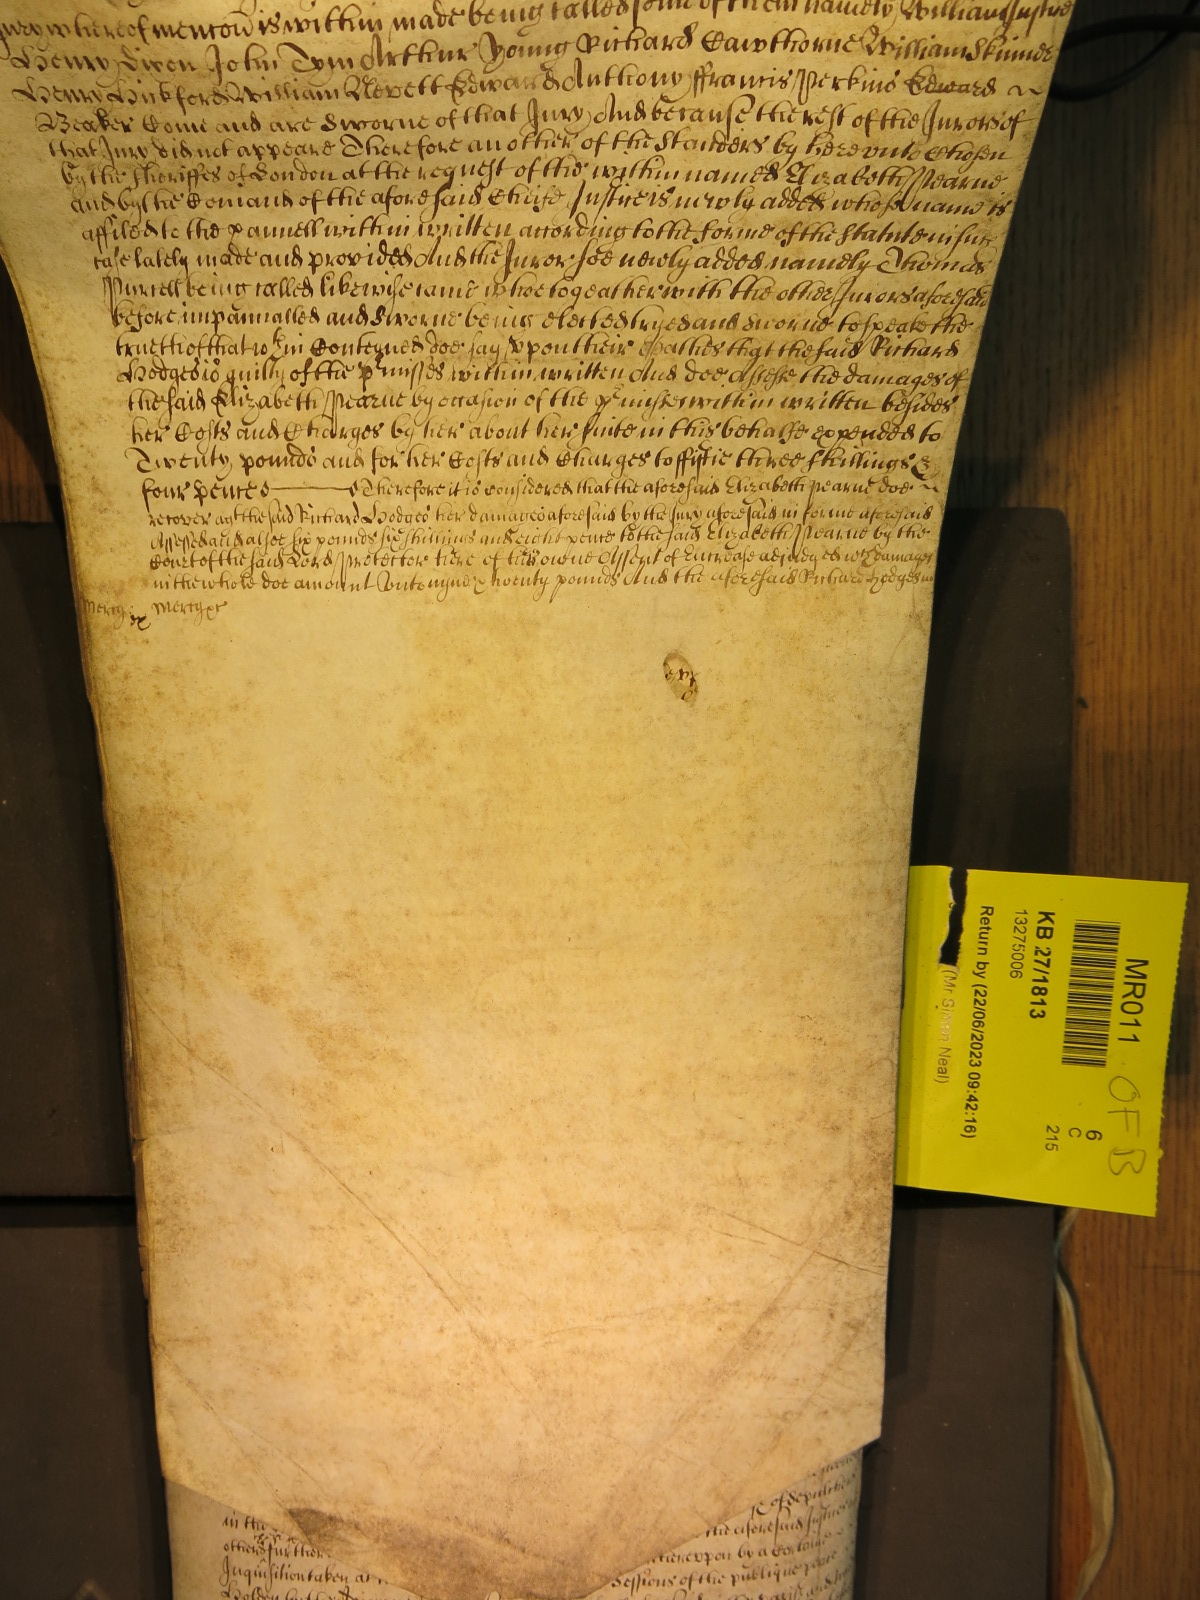 whereof mencon is within made being called some of them namely William
Henry Dixon John Tym Arthur Young Richard Cawthorne William Skinner
Henry Hickford William Nevett Edward Anthony ffrancis Perkins Edward
Beaker Come and are sworne of that Jury And because the rest of the Jurors of
that Jury did not appeare Therefore another of the standers by here unto chosen
by the Sheriffes of London at the request of the within named Elizabeth Pearne
and by the Comand of the aforesaid Cheife Justice is newly added whose name is
affiled to the pannell within written according to the forme of the statute in such
case lately made and provided And the Juror soe newly added namely Thomas
Purcell being called likewise came whoe togeather with the other Jurors aforesaid
before impannalled and sworne being elected tryed and sworne to speake the
trueth of that wthin Conteyned doe say upon their oathes that the said Richard
Hodges is guilty of the pmisses within written And doe Assesse the damages of
the said Elizabeth Pearne by occasion of the pmisses within written besides
her Costs and Charges by her about her suite in this behalfe expended to
Twenty pounds and for her Costs and Charges to fiftie three shillings &
four pence Therefore it is considered that the aforesaid Elizabeth Pearne doe
recover agt the said Richard Hodges her damages aforesaid by the Jury aforesaid in forme aforesaid
Assessed and alsoe six pounds six shillings and eight pence to the said Elizabeth Pearne by the
Court of the said Lord Protector here of his owne Assent of Increase adjudged wch damages
in the whole doe amount unto nyne & twenty pounds And the aforesaid Richard Hodges in
Mercy &c Mercy &c
MR011
OF B
6
C
215
KB 27/1813
13275006
Return by (22/06/2023 09:42:16)
(Mr Simon Neal)
of deputies
in the
the aforesaid Justice
others further
hereupon by a certaine
Inquisition taken at
Sessions of the publique peace